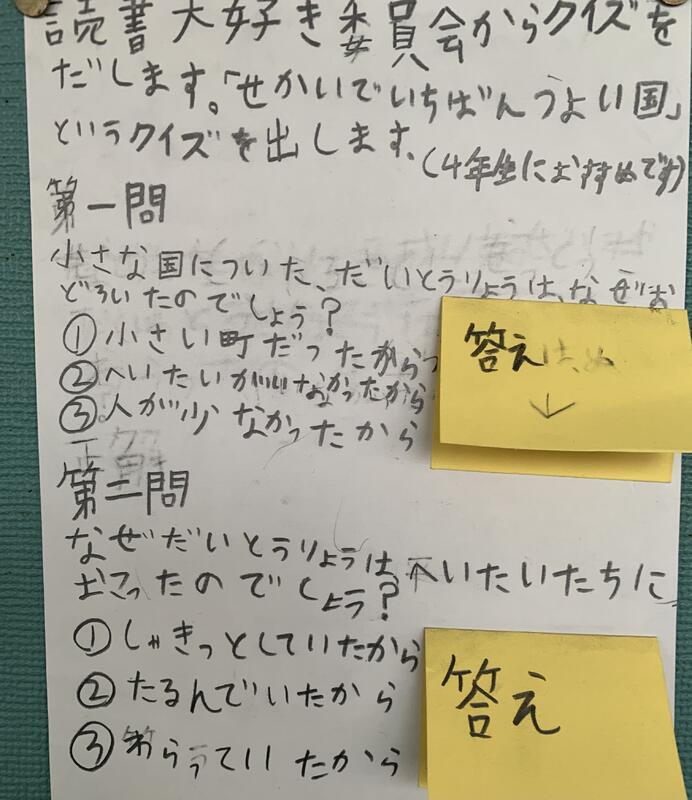 読書大好き委員会からクイズを
だします。「せかいでいちばんつよい国」
というクイズを出します。
(4年生におすすめです)
第一問
小さな国についた、だいとうりょうは、なぜお
どろいたのでしょう?
①小さい町だったから
②へいたいがいなかったから
③人が少なかったから
答え
↓
第二問
なぜだいとうりょうはへいたいたちに
おこったのでしょう?
①しゃきっとしていたから
②たるんでいたから
③笑らっていたから
答え